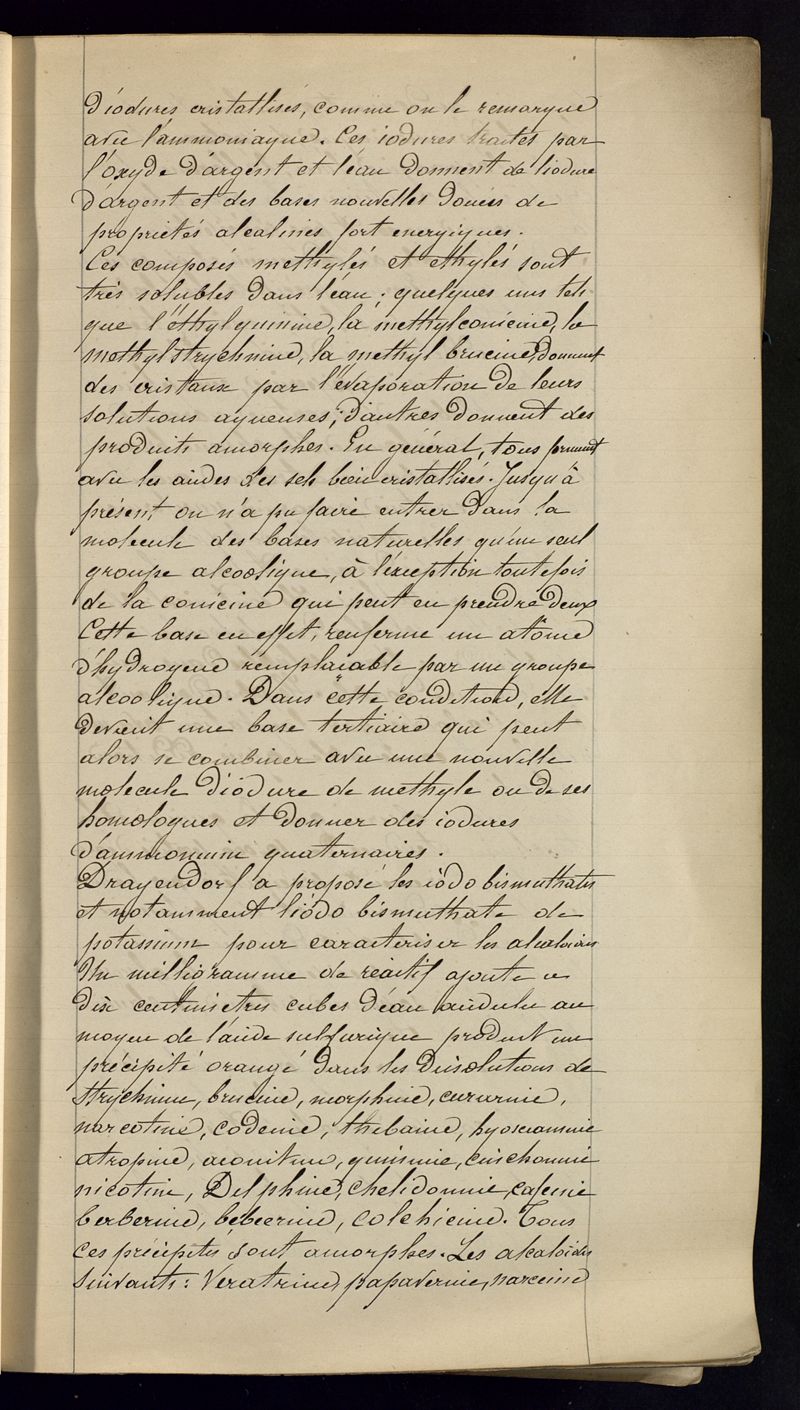 d'iodures cristallisés, comme on le remarque
avec l'ammoniaque. Ces iodures traités par
l'oxyde d'argent et l'eau donnent de l'iodure
d'argent et des bases nouvelles douées de
proprietés alcalines fort energiques.
Ces composés methylés et ethylés sont
très solubles dans l'eau; quelques uns tels
que l'éthylquinine, la methylconicine, la
methylstrychnine, la methyl brucine, donnent
des cristaux par l'évaporation de leurs
solutions aqueuses; d'autres donnent des
produits amorphes. En général, tous forment
avec les acides des sels bien cristallisés. Jusqu'à
présent on n'a pu faire entrer dans la
molecule des bases naturelles qu'un seul
groupe alcoolique, à l'éxception toutefois
de la conicine qui peut en prendre deux
Cette base en effet, renferme un atôme
d'hydrogene remplaçable par un groupe
alcoolique. Dans cette condition, elle
devient une base tertiaire qui peut
alors se combiner avec une nouvelle
molecule d'iodure de methyle ou de ses
homologues et donner des iodures
d'ammonium quaternaires.
Dragendorf a proposé les iôdo bismuthates
et notamment l'iôdo bismuthate de
potassium pour caracteriser les alcaloides
Un milligramme de réactif ajouté a
dix centimetres cubes d'eau acidulee au
moyen de l'acide sulfurique produit un
précipité orangé dans les dissolutions de
strychnine, brucine, morphine, curarine,
narcotine, codeine, thebaine, hyosciamine
atropine, aconitine, quinine, cinchonine
nicotine, Delphine, chelidonine, cafeine
berberine, bébeerine, colchicine. Tous
ces précipités sont amorphes. Les alcaloïdes
suivants: Veratrine, papaverine, narceine